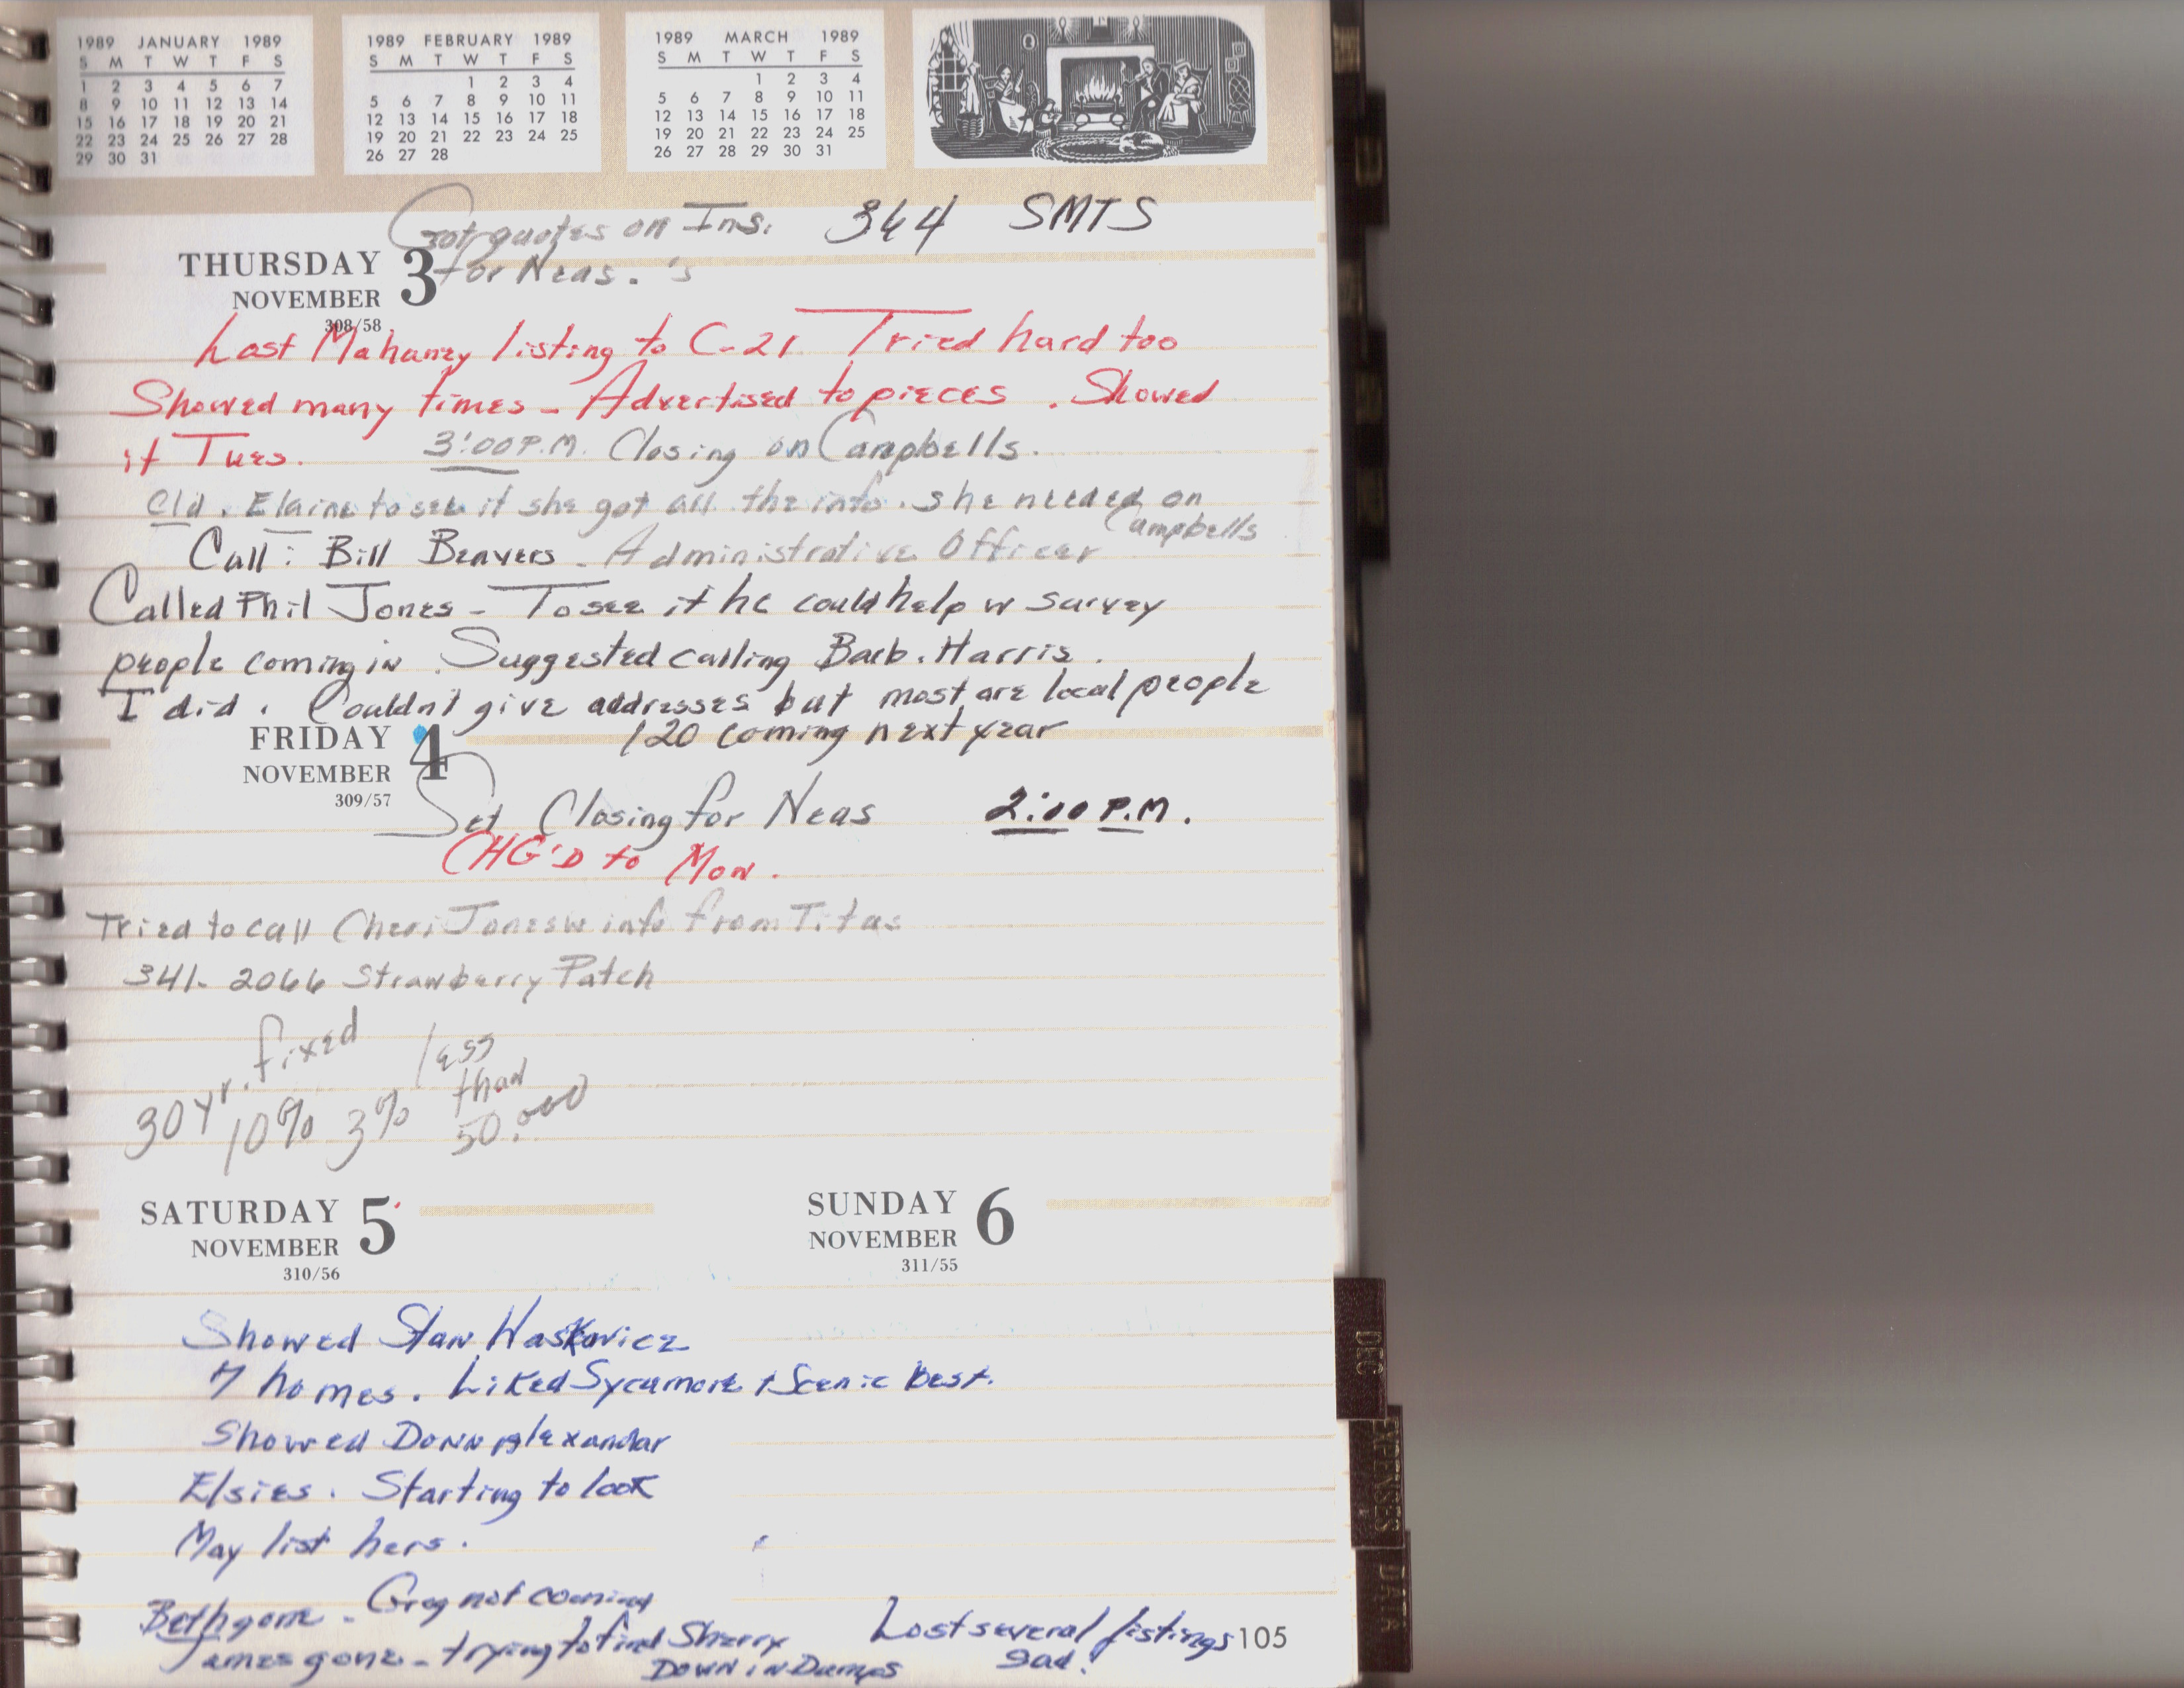 1989 JANUARY 1989
S M T W T F S
1 2 3 4 5 6 7
8 9 10 11 12 13 14
15 16 17 18 19 20 21
22 23 24 25 26 27 28
29 30 31
1989 FEBRUARY 1989
S M T W T F S
1 2 3 4
5 6 7 8 9 10 11
12 13 14 15 16 17 18
19 20 21 22 23 24 25
26 27 28
1989 MARCH 1989
S M T W T F S
1 2 3 4
5 6 7 8 9 10 11
12 13 14 15 16 17 18
19 20 21 22 23 24 25
26 27 28 29 30 31
Got quotes on Ins. 364 SMTS
for Neas.'s
THURSDAY 3
NOVEMBER
308/58
Lost Mahaney listing to C-21. Tried hard too
Showed many times - Advertised to pieces. Showed
it Tues. 3:00 P.M. Closing on Campbells.
Cld. Elaine to see if she got all the info. she needed on
Campbells
Call: Bill Beavers - Administrative Officer
Called Phil Jones - To see if he could help w survey
people coming in. Suggested calling Barb. Harris.
I did. Couldn't give addresses but most are local people
120 coming next year
FRIDAY 4
NOVEMBER
309/57
Set Closing for Neas 2:00 P.M.
CHG'D to Mon.
Tried to call Cheri Jones w info from Titus
341-2066 Strawberry Patch
30 yr. fixed
10% 3% less
than
50,000
SATURDAY 5
NOVEMBER
310/56
SUNDAY 6
NOVEMBER
311/55
Showed Stan Waskowicz
7 homes. Liked Sycamore + Scenic best.
Showed Donna Alexandar
Elsies. Starting to look
May list hers.
Beth gone - Greg not coming
James gone - trying to find Sherry
Down in Dumps
Lost several listings
Sad!
105
DEC
EXPENSES
DATA